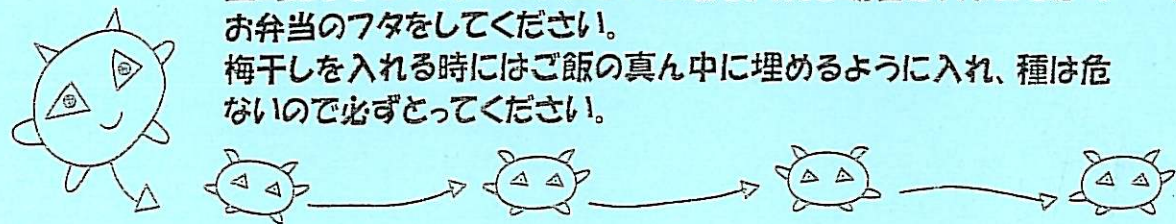 お弁当のフタをしてください。
梅干しを入れる時にはご飯の真ん中に埋めるように入れ、種は危
ないので必ずとってください。